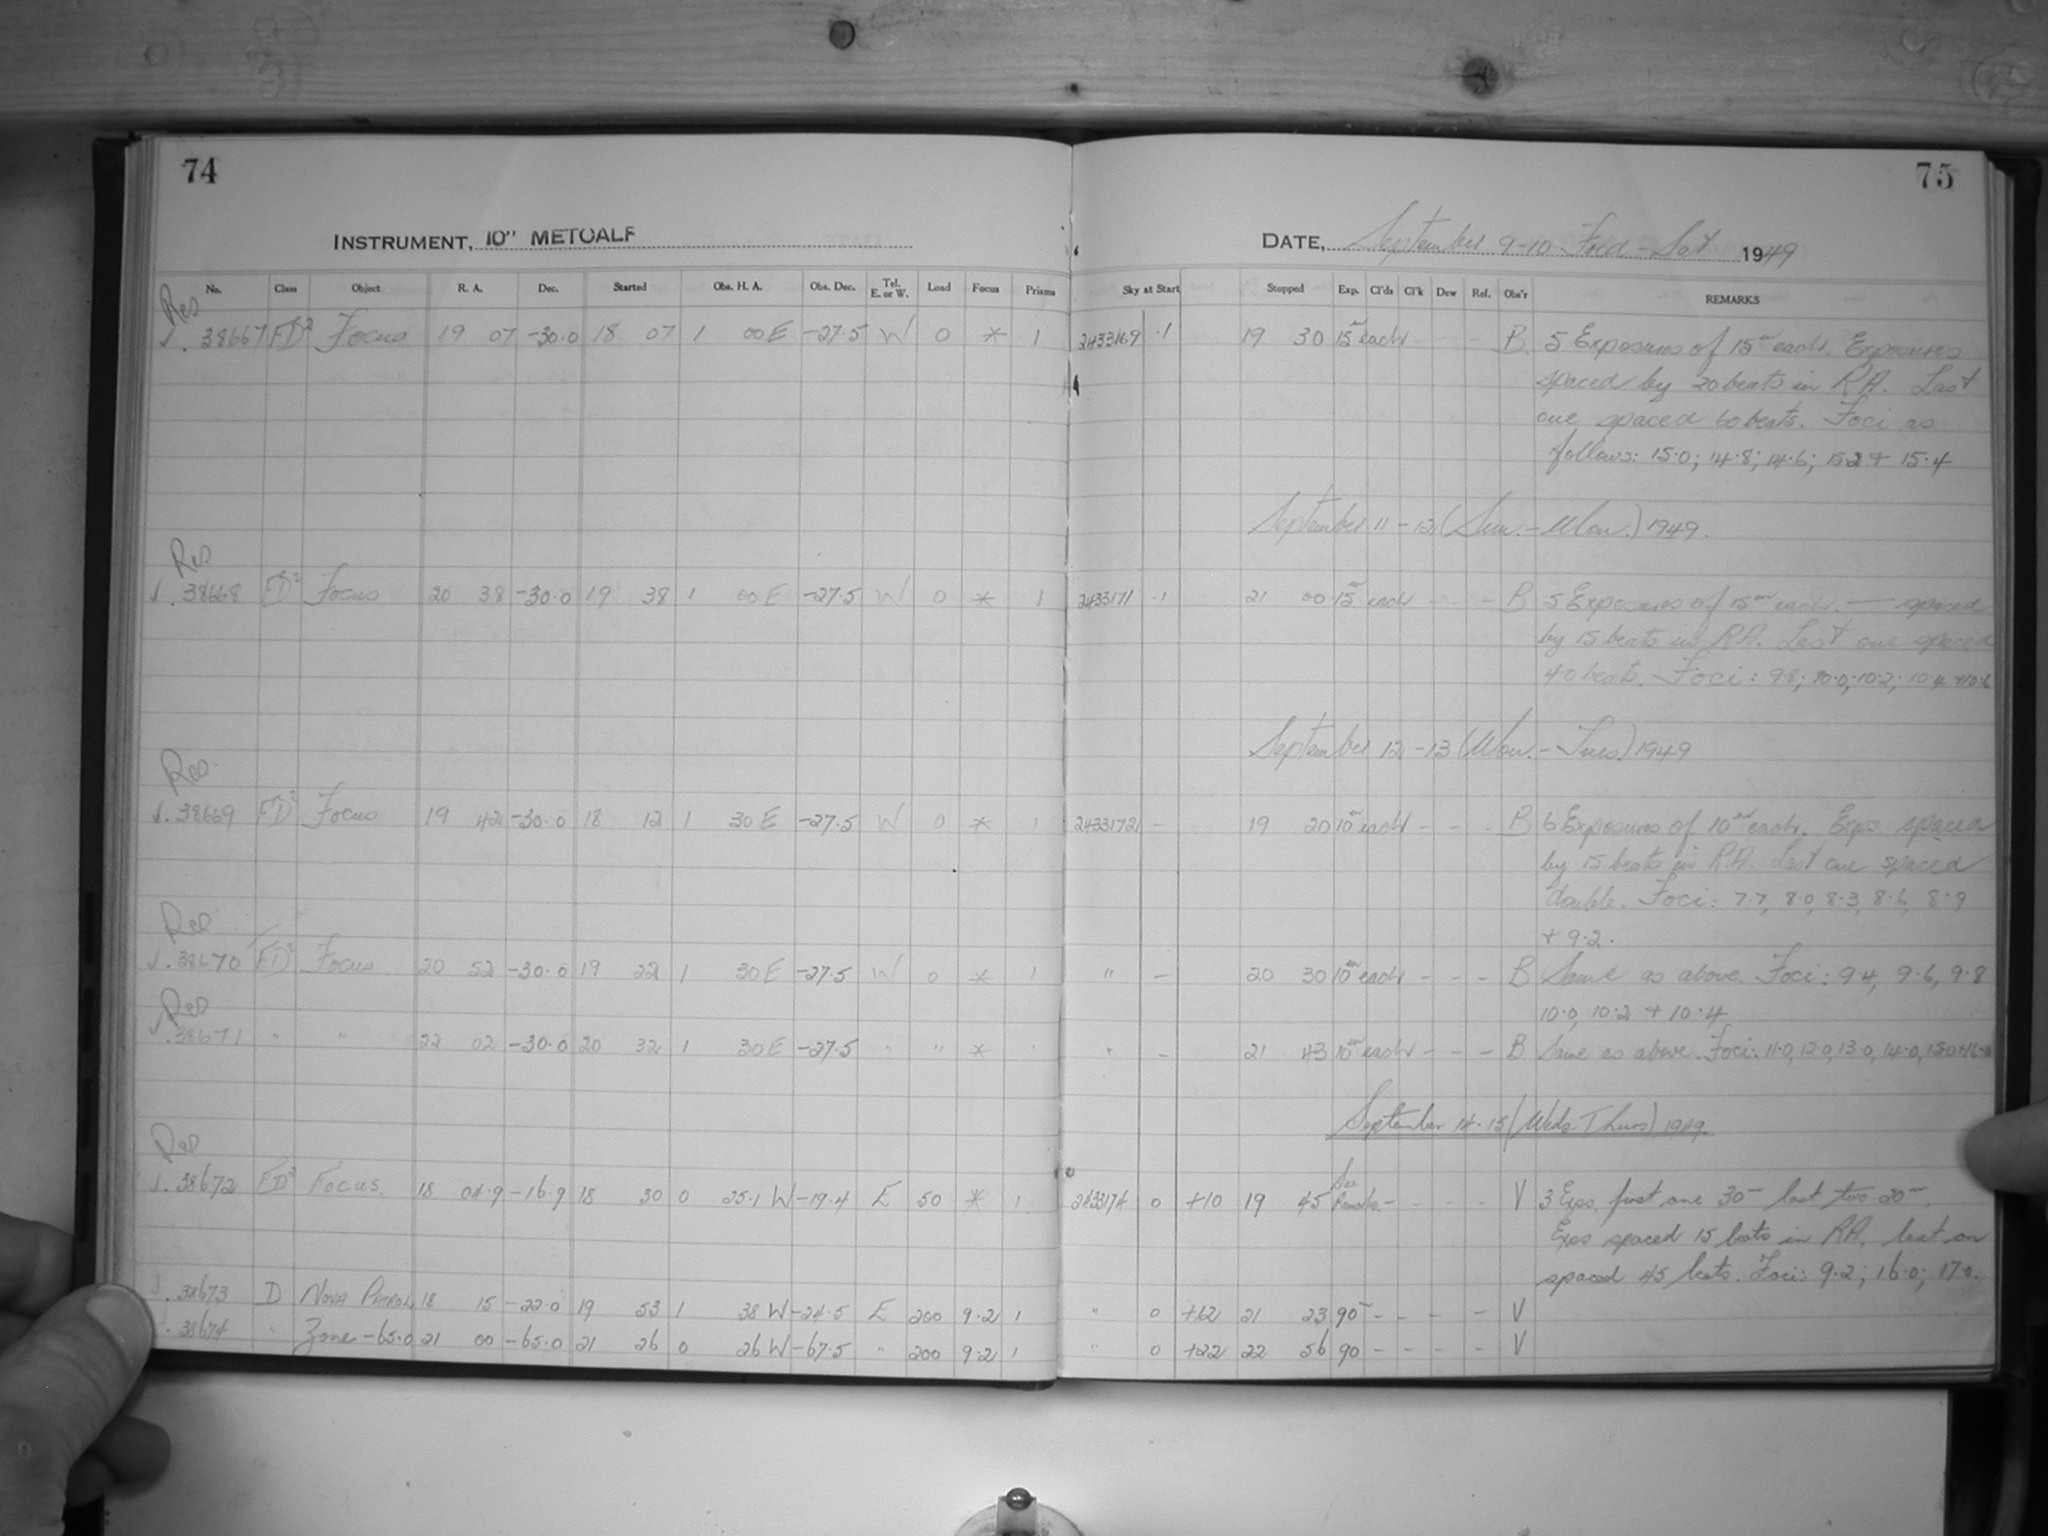 74
INSTRUMENT, 10" METCALF
No. Class Object R. A. Dec. Started Obs. H. A. Obs. Dec. Tel. E. or W. Load Focus Prisms
Res
38667 FD² Focus 19 07 -30.0 18 07 1 00 E -27.5 W 0 * 1
Res
38668 FD² Focus 20 38 -30.0 19 38 1 00 E -27.5 W 0 * 1
Res
38669 FD² Focus 19 42 -30.0 18 12 1 30 E -27.5 W 0 * 1
Res
38670 FD² Focus 20 52 -30.0 19 22 1 30 E -27.5 W 0 * 1
Res
38671 " " 22 02 -30.0 20 32 1 30 E -27.5 " " * 1
Res
38672 FD² Focus. 18 04.9 -16.9 18 30 0 25.1 W -19.4 E 50 * 1
38673 D NOVA PATROL 18 15 -22.0 19 53 1 38 W -24.5 E 200 9.2 1
38674 " Zone -65.0 21 00 -65.0 21 26 0 26 W -67.5 " 200 9.2 1
75
DATE, September 9-10 Frid - Sat 1949
Sky at Start Stopped Exp. Cl'ds Cl'k Dew Ref. Obs'r REMARKS
2433169 .1 19 30 15m each - - B. 5 Exposures of 15m each. Exposures
spaced by 20 beats in R.A. Last
one spaced 60 beats. Foci as
follows: 15.0; 14.8; 14.6; 15.2 + 15.4
September 11-12 (Sun. - Mon.) 1949.
2433171 .1 21 00 15m each - - - B 5 Exposures of 15m each. — spaced
by 15 beats in R.A. Last one spaced
40 beats. Foci: 9.8; 10.0; 10.2; 10.4 + 10.6
September 12-13 (Mon. - Tues.) 1949
2433172 - 19 20 10m each - - - B 6 Exposures of 10m each. Exps. spaced
by 15 beats in R.A. Last one spaced
double. Foci: 7.7, 8.0, 8.3, 8.6, 8.9
+ 9.2.
" - 20 30 10m each - - - B Same as above. Foci: 9.4, 9.6, 9.8
10.0, 10.2 + 10.4
" - 21 43 10m each - - - B Same as above. Foci: 11.0, 12.0, 13.0, 14.0, 15.0 + 16.0
September 14-15 (Weds-Thurs) 1949.
2433174 0 +10 19 45 See Remarks - - - - V 3 Exps. first one 30m last two 20m
Exps spaced 15 beats in RA. last on
spaced 45 beats. Foci: 9.2; 16.0; 17.0.
" 0 +12 21 23 90m - - - - V
" 0 +22 22 56 90 - - - - V